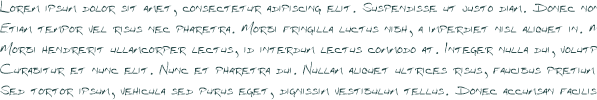 Lorem ipsum dolor sit amet, consectetur adipiscing elit. Suspendisse ut justo diam. Donec non
Etiam tempor vel risus nec pharetra. Morbi fringilla luctus nibh, a imperdiet nisl aliquet in. A
Morbi hendrerit ullamcorper lectus, id interdum lectus commodo at. Integer nulla dui, volutp
Curabitur et nunc elit. Nunc et pharetra dui. Nullam aliquet ultrices risus, faucibus pretium
Sed tortor ipsum, vehicula sed purus eget, dignissim vestibulum tellus. Donec accumsan facilis